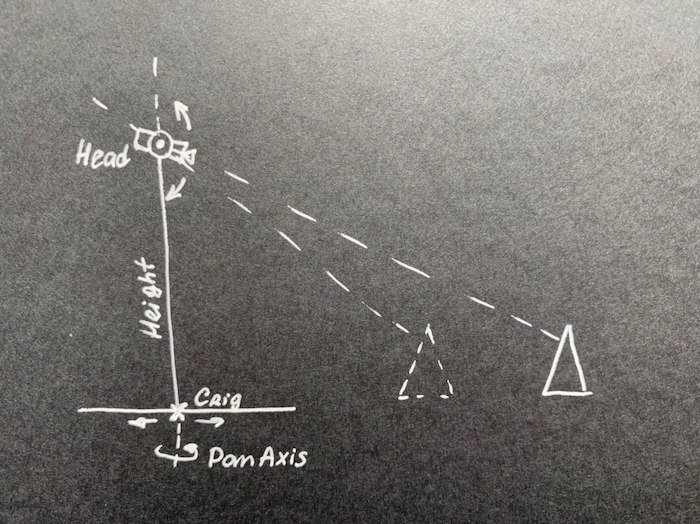 Head
Height
Crig
Pan Axis